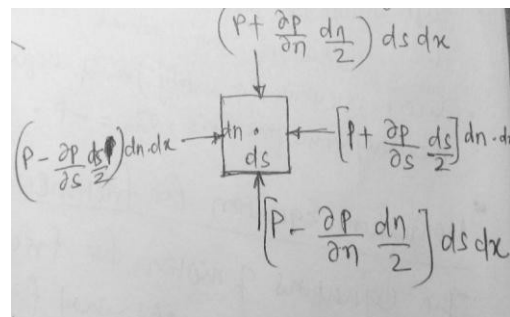 (P + ∂P/∂n dn/2) ds dx
(P − ∂P/∂s ds/2) dn·dx
dn ·
ds
[P + ∂P/∂s ds/2] dn·d
[P − ∂P/∂n dn/2] ds dx